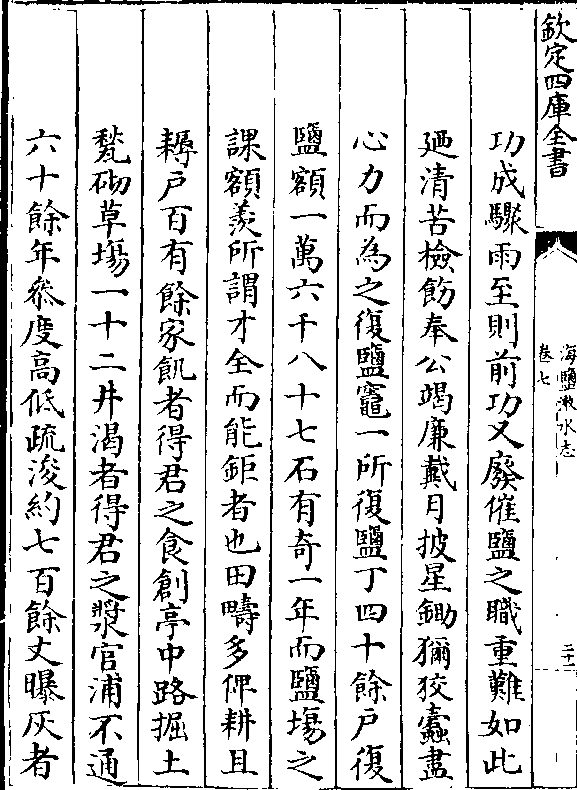 欽定四庫全書
海鹽澉水志
卷七
二十一
功成驟雨至則前功又廢催鹽之職重難如此
廼清苦檢飭奉公竭廉戴月披星鋤獮狡蠹盡
心力而為之復鹽竈一所復鹽丁四十餘戶復
鹽額一萬六千八十七石有奇一年而鹽塲之
課額羨所謂才全而能鉅者也田疇多俾耕且
耨戶百有餘家飢者得君之食創亭中路掘土
甃砌草塲一十二井渴者得君之漿官浦不通
六十餘年叅度高低疏浚約七百餘丈曝灰者